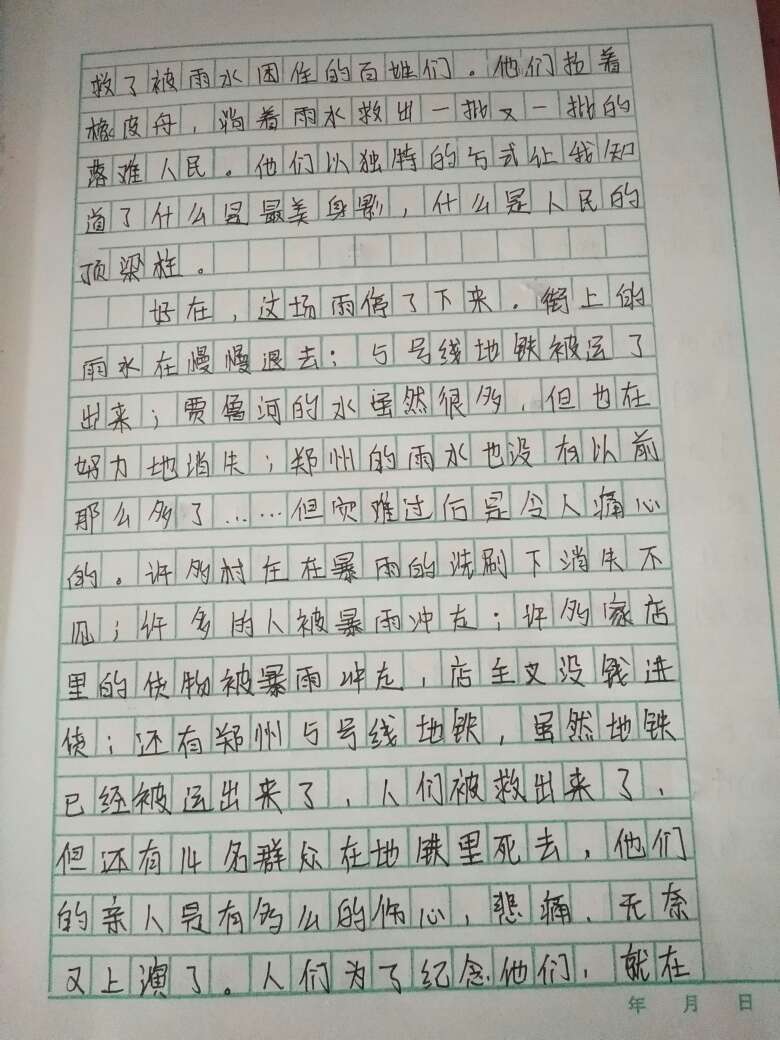 救了被雨水困住的百姓们。他们抬着
橡皮舟，淌着雨水救出一批又一批的
落难人民。他们以独特的方式让我知
道了什么是最美身影，什么是人民的
顶梁柱。
好在，这场雨停了下来。街上的
雨水在慢慢退去；5号线地铁被运了
出来；贾鲁河的水虽然很多，但也在
努力地消失；郑州的雨水也没有以前
那么多了……但灾难过后是令人痛心
的。许多村庄在暴雨的洗刷下消失不
见；许多的人被暴雨冲走；许多家店
里的货物被暴雨冲走，店主又没钱进
货；还有郑州5号线地铁，虽然地铁
已经被运出来了，人们被救出来了，
但还有14名群众在地铁里死去，他们
的亲人是有多么的伤心，悲痛、无奈
又上演了。人们为了纪念他们，就在
年 月 日